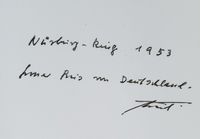 Nürburg-Ring 1953
Preis von Deutschland.